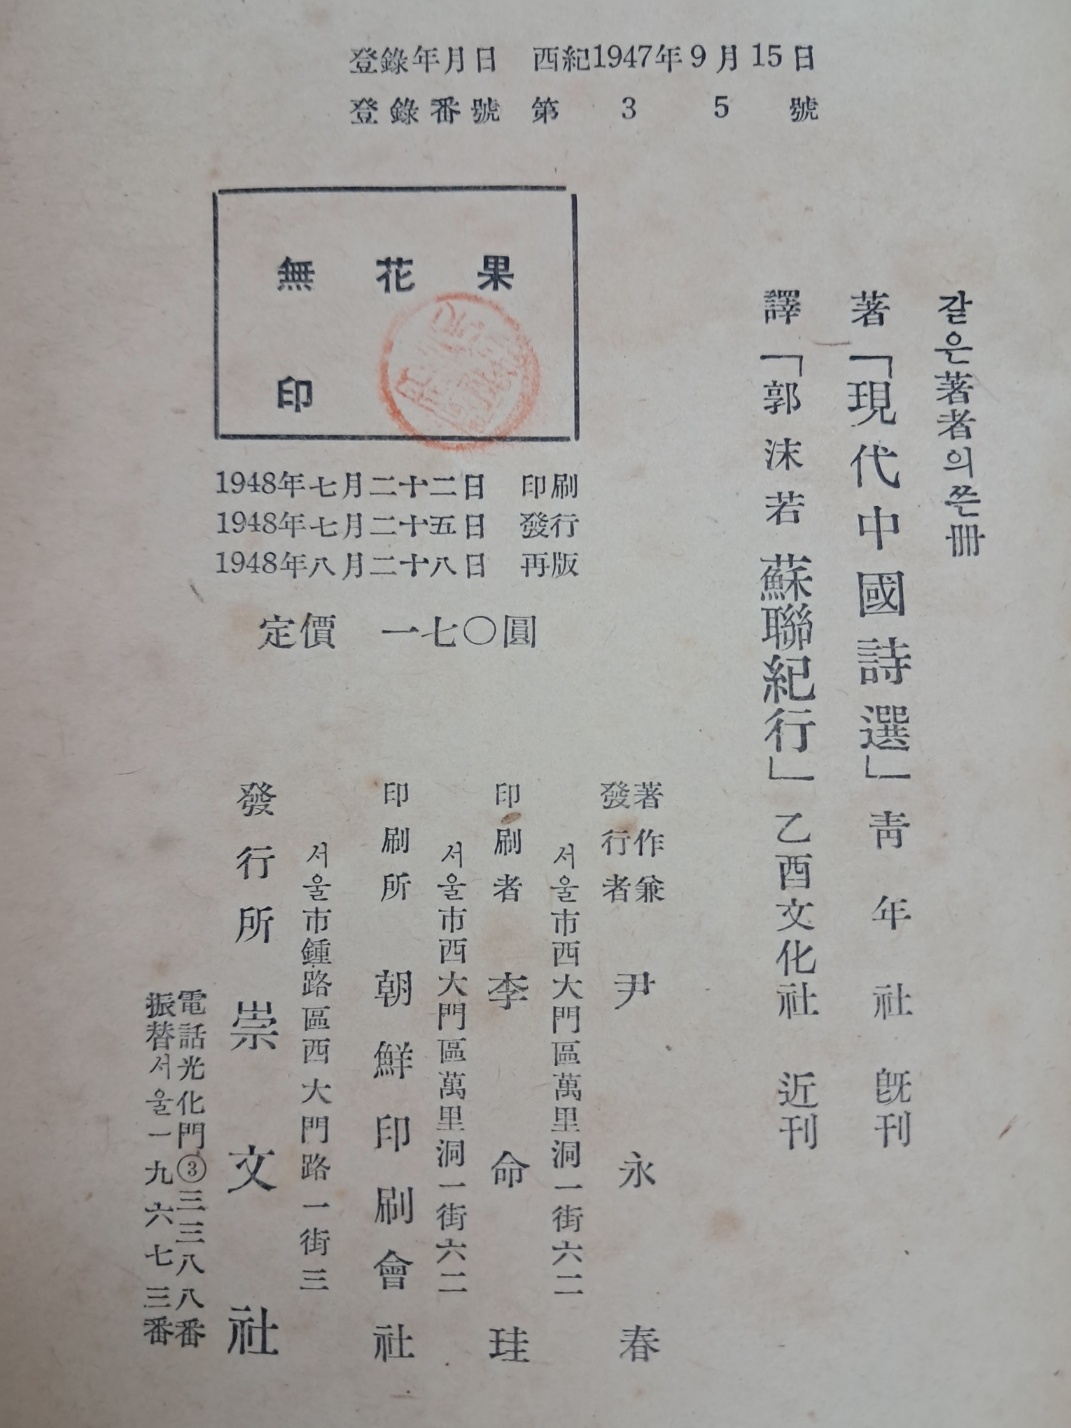 登錄年月日 西紀1947年9月15日
登錄番號 第 3 5 號
無 花 果
印
1948年七月二十二日 印刷
1948年七月二十五日 發行
1948年八月二十八日 再版
定價 一七〇圓
같은著者의쓴冊
著「現代中國詩選」靑年社 旣刊
譯「郭沫若 蘇聯紀行」乙酉文化社 近刊
著作兼
發行者 尹永春
서울市西大門區萬里洞一街六二
印刷者 李命珪
서울市西大門區萬里洞一街六二
印刷所 朝鮮印刷會社
서울市鍾路區西大門路一街三
發行所 崇文社
電話光化門③三三八八番
振替서울一九六七三番